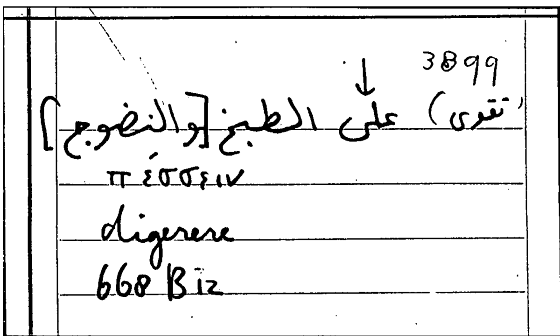 3899
(تقوى) على الطبخ [والنضوج]
πέσσειν
digerere
668 Biz